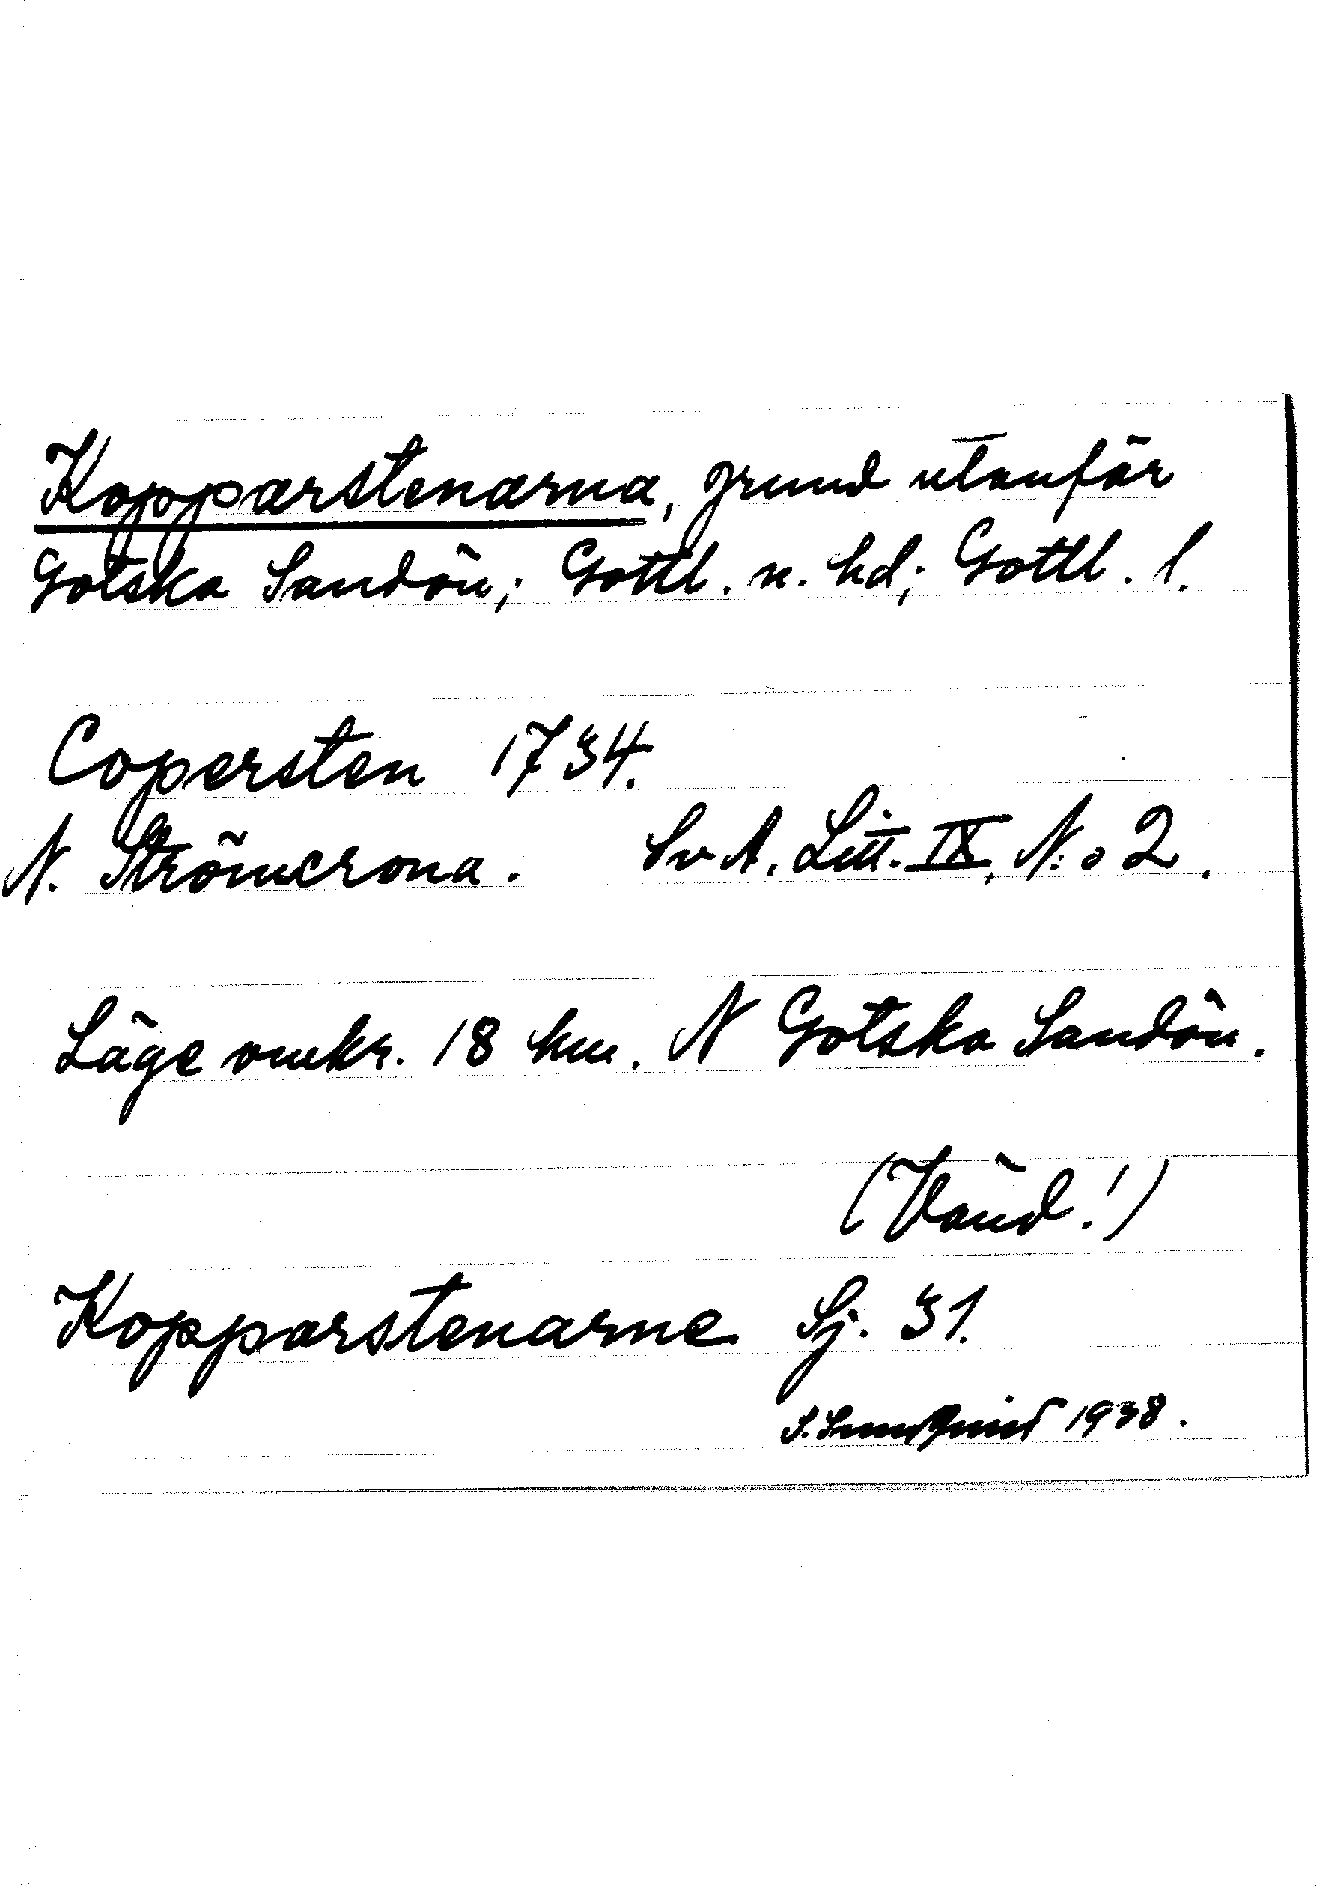 Kopparstenarna, grund utanför
Gotska Sandön; Gottl. n. hd; Gottl. l.
Copersten 1734.
N. Strömcrona. Sv A. Litt. IX, N:o 2.
Läge omkr. 18 km. N Gotska Sandön.
(Vänd!)
Kopparstenarne Sj. 31.
S. Sundquist 1938.